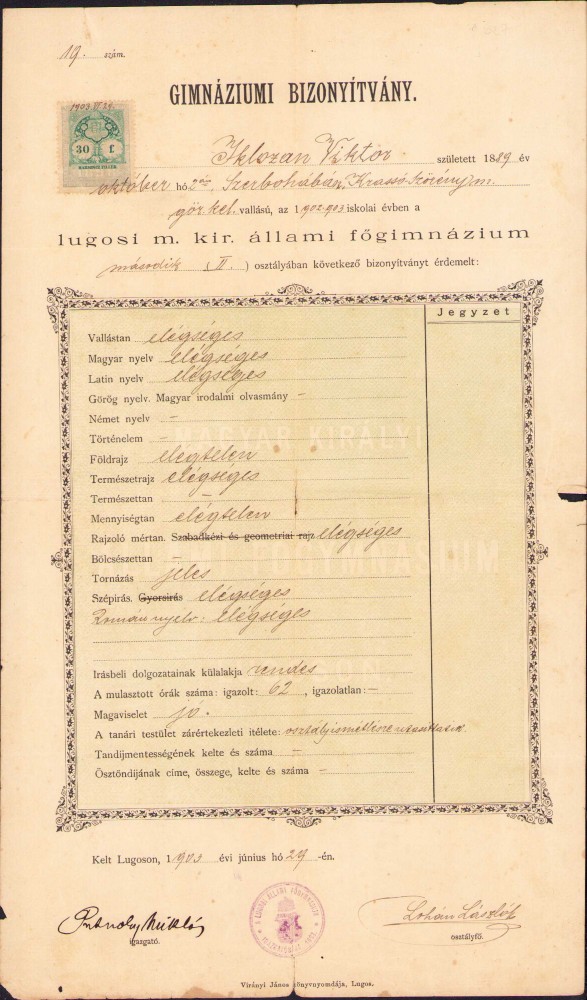 19. szám.
GIMNÁZIUMI BIZONYÍTVÁNY.
1903. VI. 29.
30 f.
Iklozan Viktor született 1889 év
október hó 2án Szerbohábán, Krassó-Szörény m.
gör. kel. vallású, az 1902-903 iskolai évben a
lugosi m. kir. állami főgimnázium
második (II.) osztályában következő bizonyítványt érdemelt:
Jegyzet
Vallástan elégséges
Magyar nyelv elégséges
Latin nyelv elégséges
Görög nyelv. Magyar irodalmi olvasmány –
Német nyelv –
Történelem –
Földrajz elégtelen
Természetrajz elégséges
Természettan –
Mennyiségtan elégtelen
Rajzoló mértan. Szabadkézi és geometriai rajz elégséges
Bölcsészettan –
Tornázás jeles
Szépirás. Gyorsirás elégséges
Roman nyelv: elégséges
Irásbeli dolgozatainak külalakja rendes
A mulasztott órák száma: igazolt: 62, igazolatlan: –
Magaviselet jó.
A tanári testület zárértekezleti itélete: osztályismétlésre utasittatik
Tandijmentességének kelte és száma –
Ösztöndijának címe, összege, kelte és száma –
Kelt Lugoson, 1903 évi június hó 29-én.
Putnoky Miklós
igazgató.
Lohán László
osztályfő.
Virányi János könyvnyomdája, Lugos.